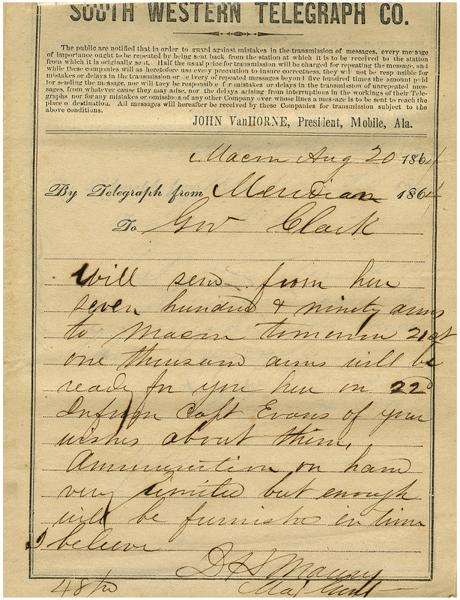 SOUTH WESTERN TELEGRAPH CO.
The public are notified that in order to guard against mistakes in the transmission of messages, every message
of importance ought to be repeated by being sent back from the station at which it is to be received to the station
from which it is originally sent. Half the usual price for transmission will be charged for repeating the message, and
while these companies will as heretofore use every precaution to insure correctness, they will not be responsible for
mistakes or delays in the transmission or delivery of repeated messages beyond five hundred times the amount paid
for sending the message, nor will they be responsible for mistakes or delays in the transmission of unrepeated mes-
sages, from whatever cause they may arise, nor the delays arising from interruptions in the workings of their Tele-
graphs nor for any mistakes or omissions of any other Company over whose lines a message is to be sent to reach the
place of destination. All messages will hereafter be received by these Companies for transmission subject to the
above conditions.
JOHN VanHORNE, President, Mobile, Ala.
Macon Aug 20 1864
By Telegraph from Meridian 1864
To Gov Clark
Will send from here
seven hundred & ninety arms
to Macon tomorrow 21st
one thousand arms will be
ready for you here on 22d
Inform Capt Evans of your
wishes about them.
Ammunition on hand
very limited but enough
will be furnished in time
I believe
D H Maury
Maj Genl